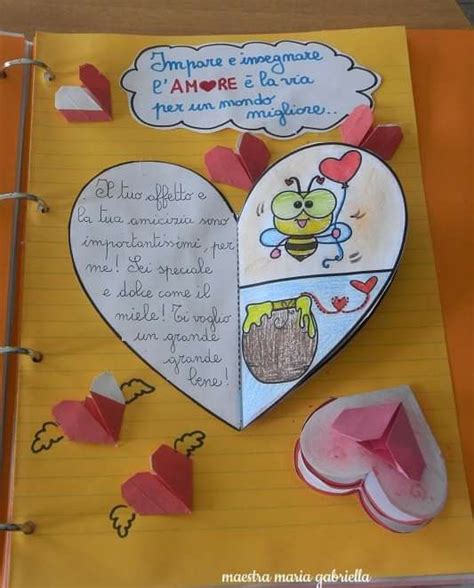 Impare e insegnare
l'AMORE è la via
per un mondo
migliore..
Il tuo affetto e
la tua amicizia sono
importantissimi, per
me! Sei speciale
e dolce come il
miele! Ti voglio
un grande
grande
bene!
maestra maria gabriella